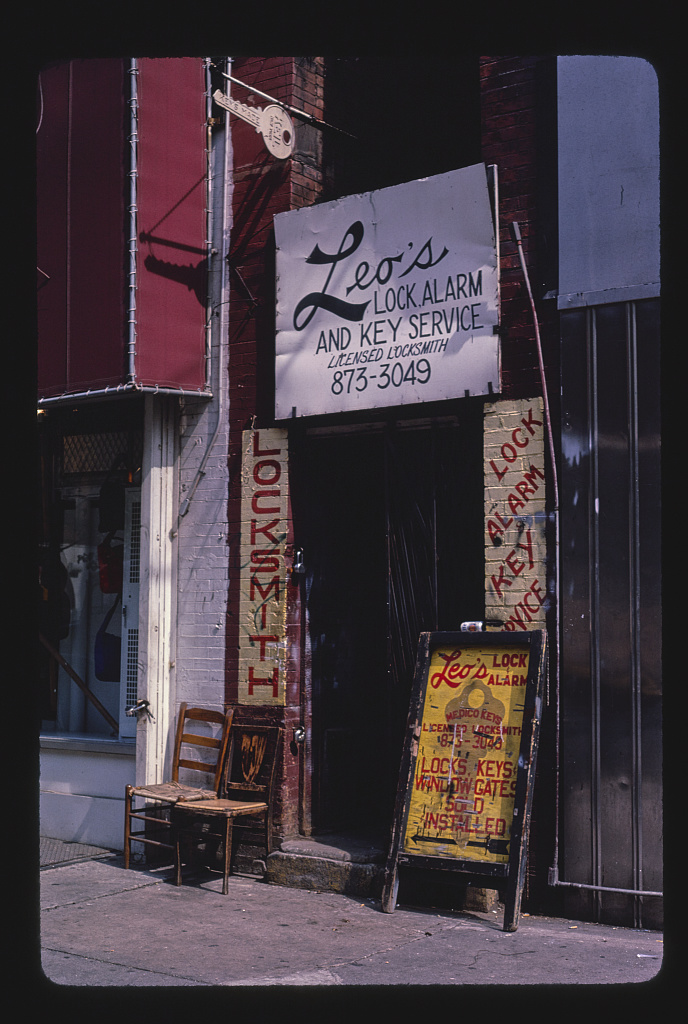 Leo's
LOCK. ALARM
AND KEY SERVICE
LICENSED LOCKSMITH
873-3049
LOCKSMITH
LOCK
ALARM
KEY
Leo's LOCK
ALARM
MEDICO KEYS
LICENSED LOCKSMITH
873-3049
LOCKS, KEYS
WINDOW GATES
SOLD
INSTALLED